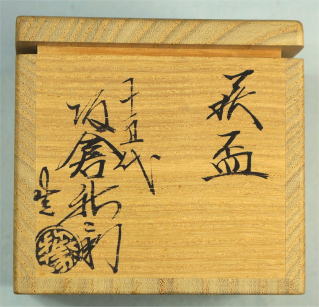 萩盃
十五代
坂倉新兵衛